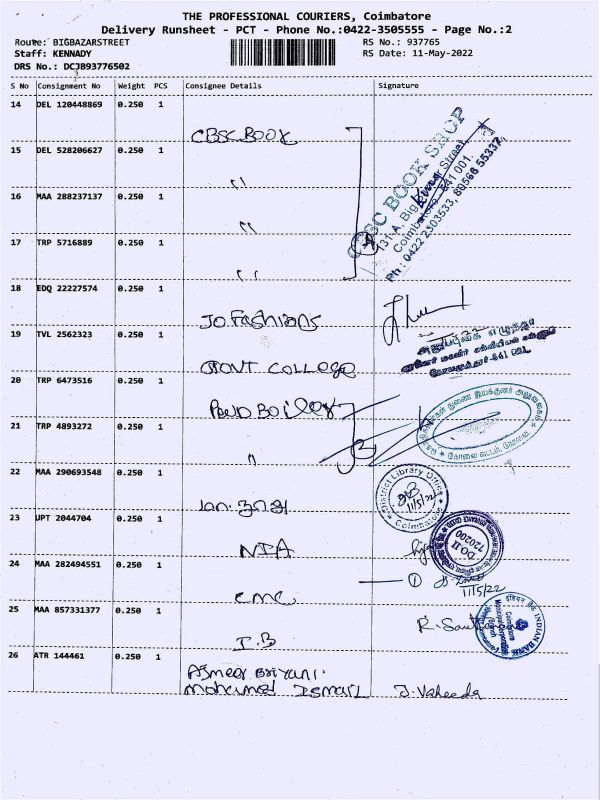 THE PROFESSIONAL COURIERS, Coimbatore
Delivery Runsheet - PCT - Phone No.:0422-3505555 - Page No.:2
Route: BIGBAZARSTREET
RS No.: 937765
Staff: KENNADY
RS Date: 11-May-2022
DRS No.: DCJB93776502
S No Consignment No Weight PCS Consignee Details Signature
14 DEL 120448869 0.250 1
CBSC BOOK
CBSC BOOK SHOP
131-A, Big Street
Coimbatore - 641 001.
Ph : 0422 2303533, 80566 55337
15 DEL 528206627 0.250 1
"
16 MAA 288237137 0.250 1
"
17 TRP 5716889 0.250 1
"
18 EDQ 22227574 0.250 1
JO. Fashions
19 TVL 2562323 0.250 1
GOVT COLLEGE
641 001.
20 TRP 6473516 0.250 1
Boiler
21 TRP 4893272 0.250 1
"
22 MAA 290693548 0.250 1
District Library Office
11/5/22
Coimbatore
23 UPT 2044704 0.250 1
NIA
DO.II
720200
24 MAA 282494551 0.250 1
CMC
1
11/5/22
25 MAA 857331377 0.250 1
I.B
R.
INDIAN BANK
26 ATR 144461 0.250 1
Ajmeer Briyani.
Mohamed Ismail J. Vaheeda